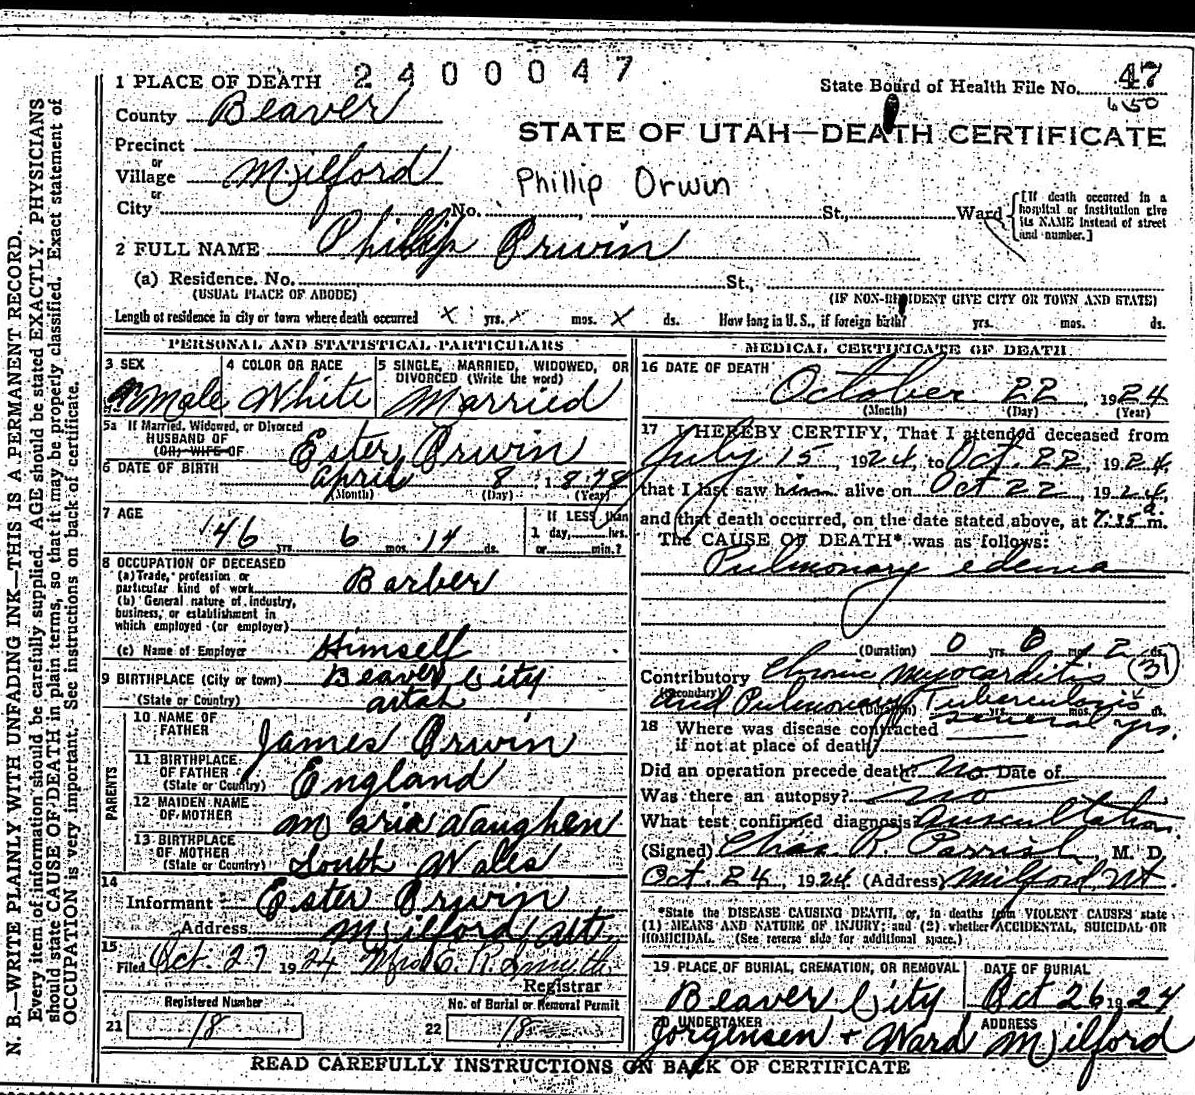 2400047
1 PLACE OF DEATH
State Board of Health File No. 47
650
County Beaver
STATE OF UTAH—DEATH CERTIFICATE
Precinct
or
Village Milford
Phillip Orwin
or
City No. St., Ward
[If death occurred in a hospital or institution give its NAME instead of street and number.]
2 FULL NAME Phillip Orwin
(a) Residence. No. St.,
(USUAL PLACE OF ABODE) (IF NON-RESIDENT GIVE CITY OR TOWN AND STATE)
Length of residence in city or town where death occurred X yrs. X mos. X ds. How long in U. S., if foreign birth? yrs. mos. ds.
PERSONAL AND STATISTICAL PARTICULARS
3 SEX Male
4 COLOR OR RACE White
5 SINGLE, MARRIED, WIDOWED, OR DIVORCED (Write the word) Married
5a If Married, Widowed, or Divorced
HUSBAND OF
(OR) WIFE OF Ester Orwin
6 DATE OF BIRTH April 8 1878
(Month) (Day) (Year)
7 AGE 46 yrs. 6 mos. 14 ds.
If LESS than
1 day, hrs.
or min.?
8 OCCUPATION OF DECEASED
(a) Trade, profession or
particular kind of work Barber
(b) General nature of industry,
business, or establishment in
which employed (or employer)
(c) Name of Employer Himself
9 BIRTHPLACE (City or town) Beaver City
(State or Country) Utah
PARENTS
10 NAME OF FATHER James Orwin
11 BIRTHPLACE OF FATHER (State or Country) England
12 MAIDEN NAME OF MOTHER Maria Vaughen
13 BIRTHPLACE OF MOTHER (State or Country) South Wales
14
Informant Ester Orwin
Address Milford Ut.
15
Filed Oct. 27 1924 Mrs E. R. Smyth
Registrar
Registered Number
21 18
No. of Burial or Removal Permit
22 18
MEDICAL CERTIFICATE OF DEATH
16 DATE OF DEATH
October 22, 1924
(Month) (Day) (Year)
17 I HEREBY CERTIFY, That I attended deceased from
July 15, 1924, to Oct. 22, 1924,
that I last saw him alive on Oct 22, 1924,
and that death occurred, on the date stated above, at 7:35 a m.
The CAUSE OF DEATH* was as follows:
Pulmonary edema
(Duration) 0 yrs. 0 mos. 2 ds.
Contributory Chronic myocarditis (31)
(Secondary)
and Pulmonary Tuberculosis
(Duration) yrs. mos. ds.
several yrs.
18 Where was disease contracted
if not at place of death?
Did an operation precede death? no Date of
Was there an autopsy? no
What test confirmed diagnosis auscultation
(Signed) Chas. R. Parrish, M. D.
Oct. 24, 1924 (Address) Milford Ut.
*State the DISEASE CAUSING DEATH, or, in deaths from VIOLENT CAUSES state
(1) MEANS AND NATURE OF INJURY; and (2) whether ACCIDENTAL, SUICIDAL OR
HOMICIDAL. (See reverse side for additional space.)
19 PLACE OF BURIAL, CREMATION, OR REMOVAL DATE OF BURIAL
Beaver City Oct 26 1924
20 UNDERTAKER ADDRESS
Jorgensen + Ward Milford
READ CAREFULLY INSTRUCTIONS ON BACK OF CERTIFICATE
N. B.—WRITE PLAINLY WITH UNFADING INK—THIS IS A PERMANENT RECORD.
Every item of information should be carefully supplied. AGE should be stated EXACTLY. PHYSICIANS
should state CAUSE OF DEATH in plain terms, so that it may be properly classified. Exact statement of
OCCUPATION is very important. See instructions on back of certificate.